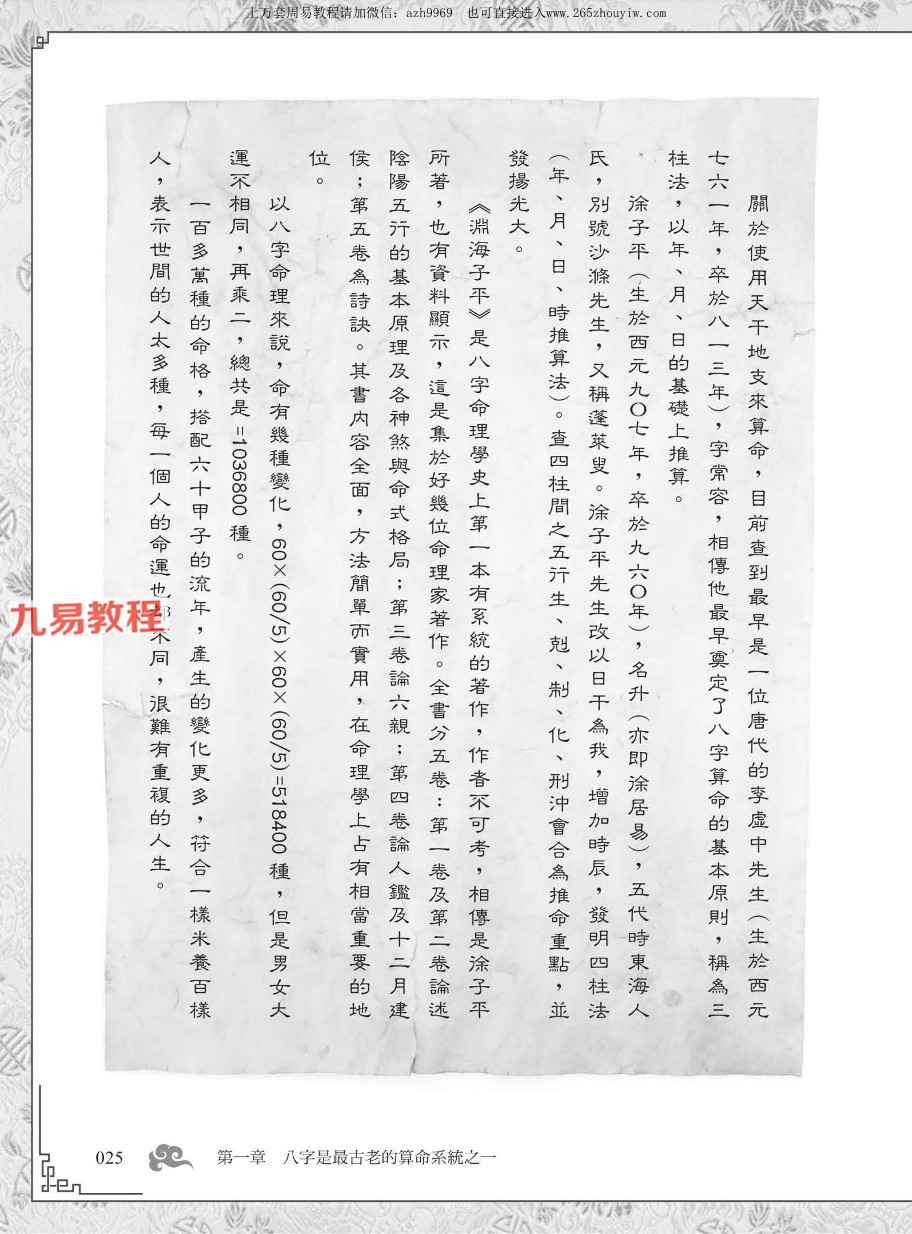 上万套周易教程请加微信：azh9969　也可直接进入www.265zhouyiw.com
關於使用天干地支來算命，目前查到最早是一位唐代的李虛中先生（生於西元
七六一年，卒於八一三年），字常容，相傳他最早奠定了八字算命的基本原則，稱為三
柱法，以年、月、日的基礎上推算。
徐子平（生於西元九〇七年，卒於九六〇年），名升（亦即徐居易），五代時東海人
氏，別號沙滌先生，又稱蓬萊叟。徐子平先生改以日干為我，增加時辰，發明四柱法
（年、月、日、時推算法）。查四柱間之五行生、剋、制、化、刑沖會合為推命重點，並
發揚光大。
《淵海子平》是八字命理學史上第一本有系統的著作，作者不可考，相傳是徐子平
所著，也有資料顯示，這是集於好幾位命理家著作。全書分五卷：第一卷及第二卷論述
陰陽五行的基本原理及各神煞與命式格局；第三卷論六親；第四卷論人鑑及十二月建
侯；第五卷為詩訣。其書內容全面，方法簡單而實用，在命理學上占有相當重要的地
位。
以八字命理來說，命有幾種變化，60×(60/5)×60×(60/5)=518400 種，但是男女大
運不相同，再乘二，總共是 =1036800 種。
一百多萬種的命格，搭配六十甲子的流年，產生的變化更多，符合一樣米養百樣
人，表示世間的人太多種，每一個人的命運也都不同，很難有重複的人生。
九易教程
025
第一章　八字是最古老的算命系統之一